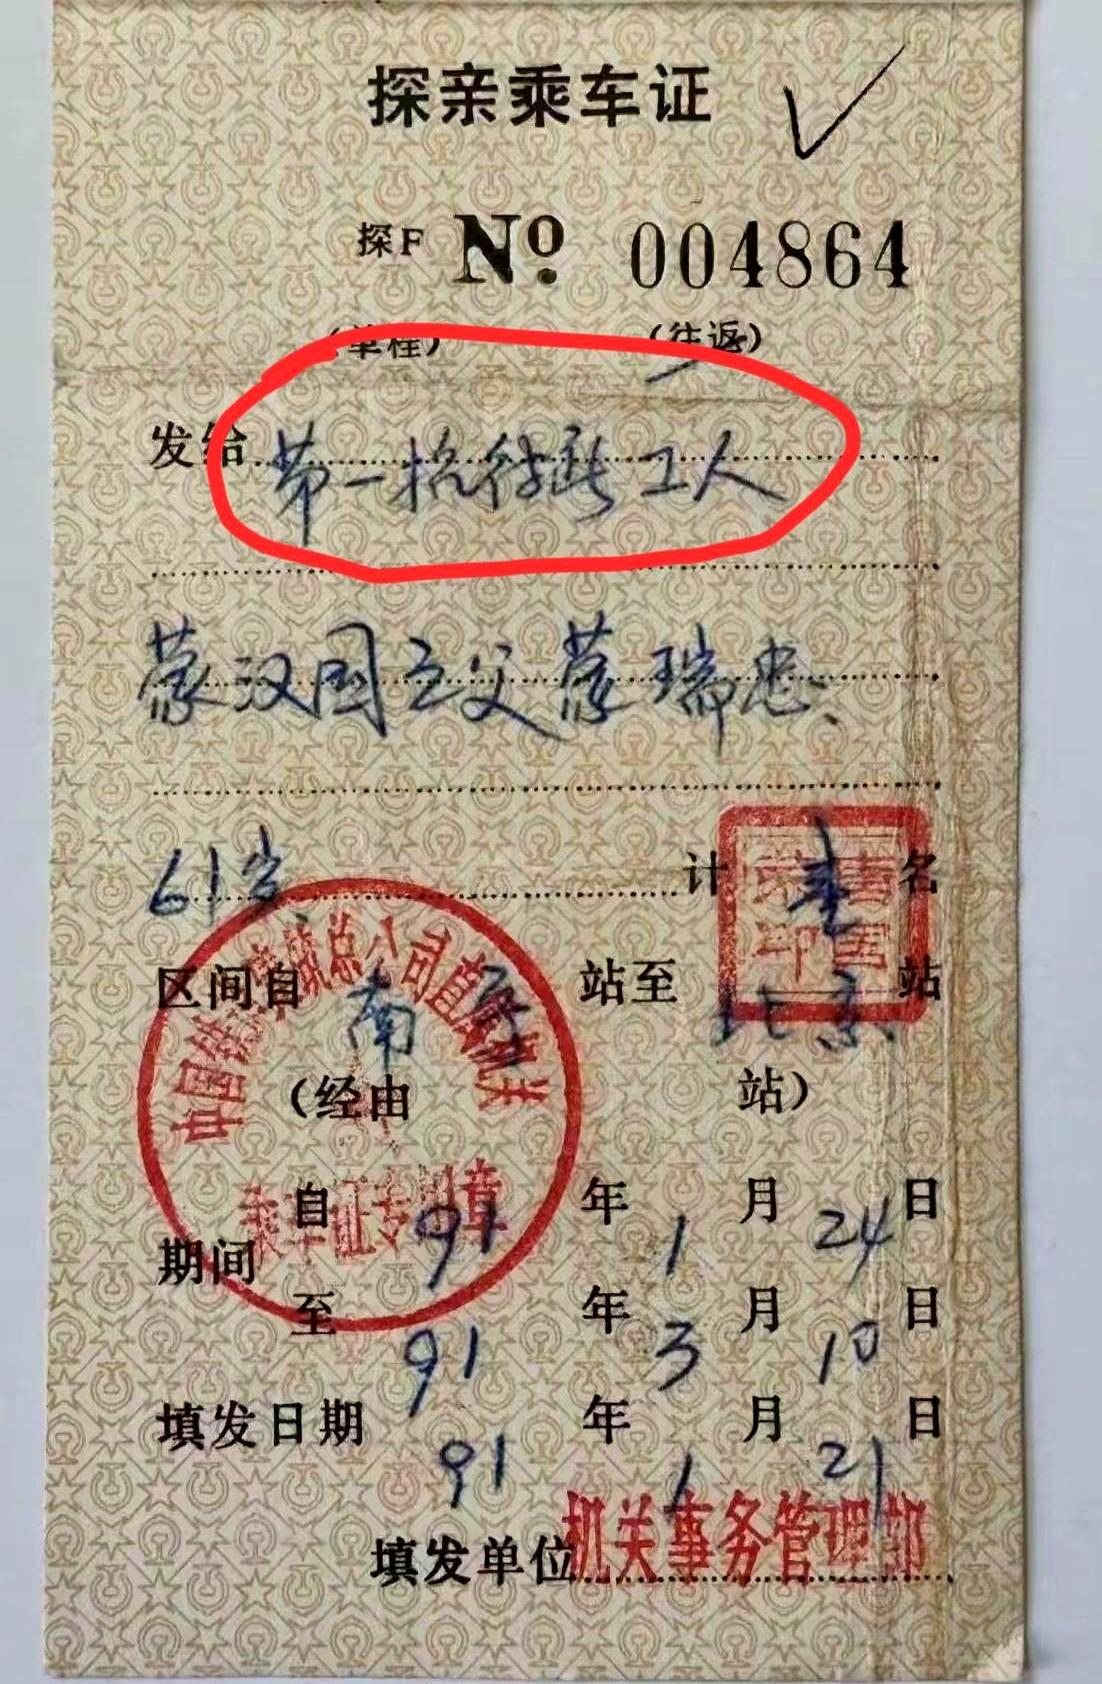 探亲乘车证
探F No. 004864
(单程) (往返)
发给 第一招待所工人
蒙汉国之父蒙瑞忠、
61岁 计 壹 名
区间自 南宁 站至 北京 站
(经由 站)
期间 自 91 年 1 月 24 日
至 91 年 3 月 10 日
填发日期 91 年 1 月 21 日
填发单位 机关事务管理部
中国铁道建筑总公司直属机关
乘车证专用章